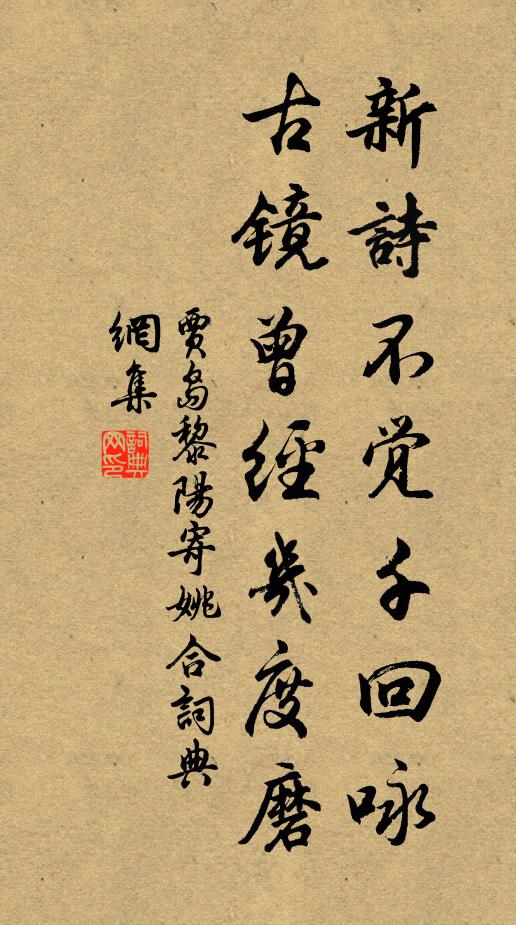 新詩不覺千回咏
古镜曾經幾度磨
賈島黎陽寄姚合詞典
網集
詞典
网印